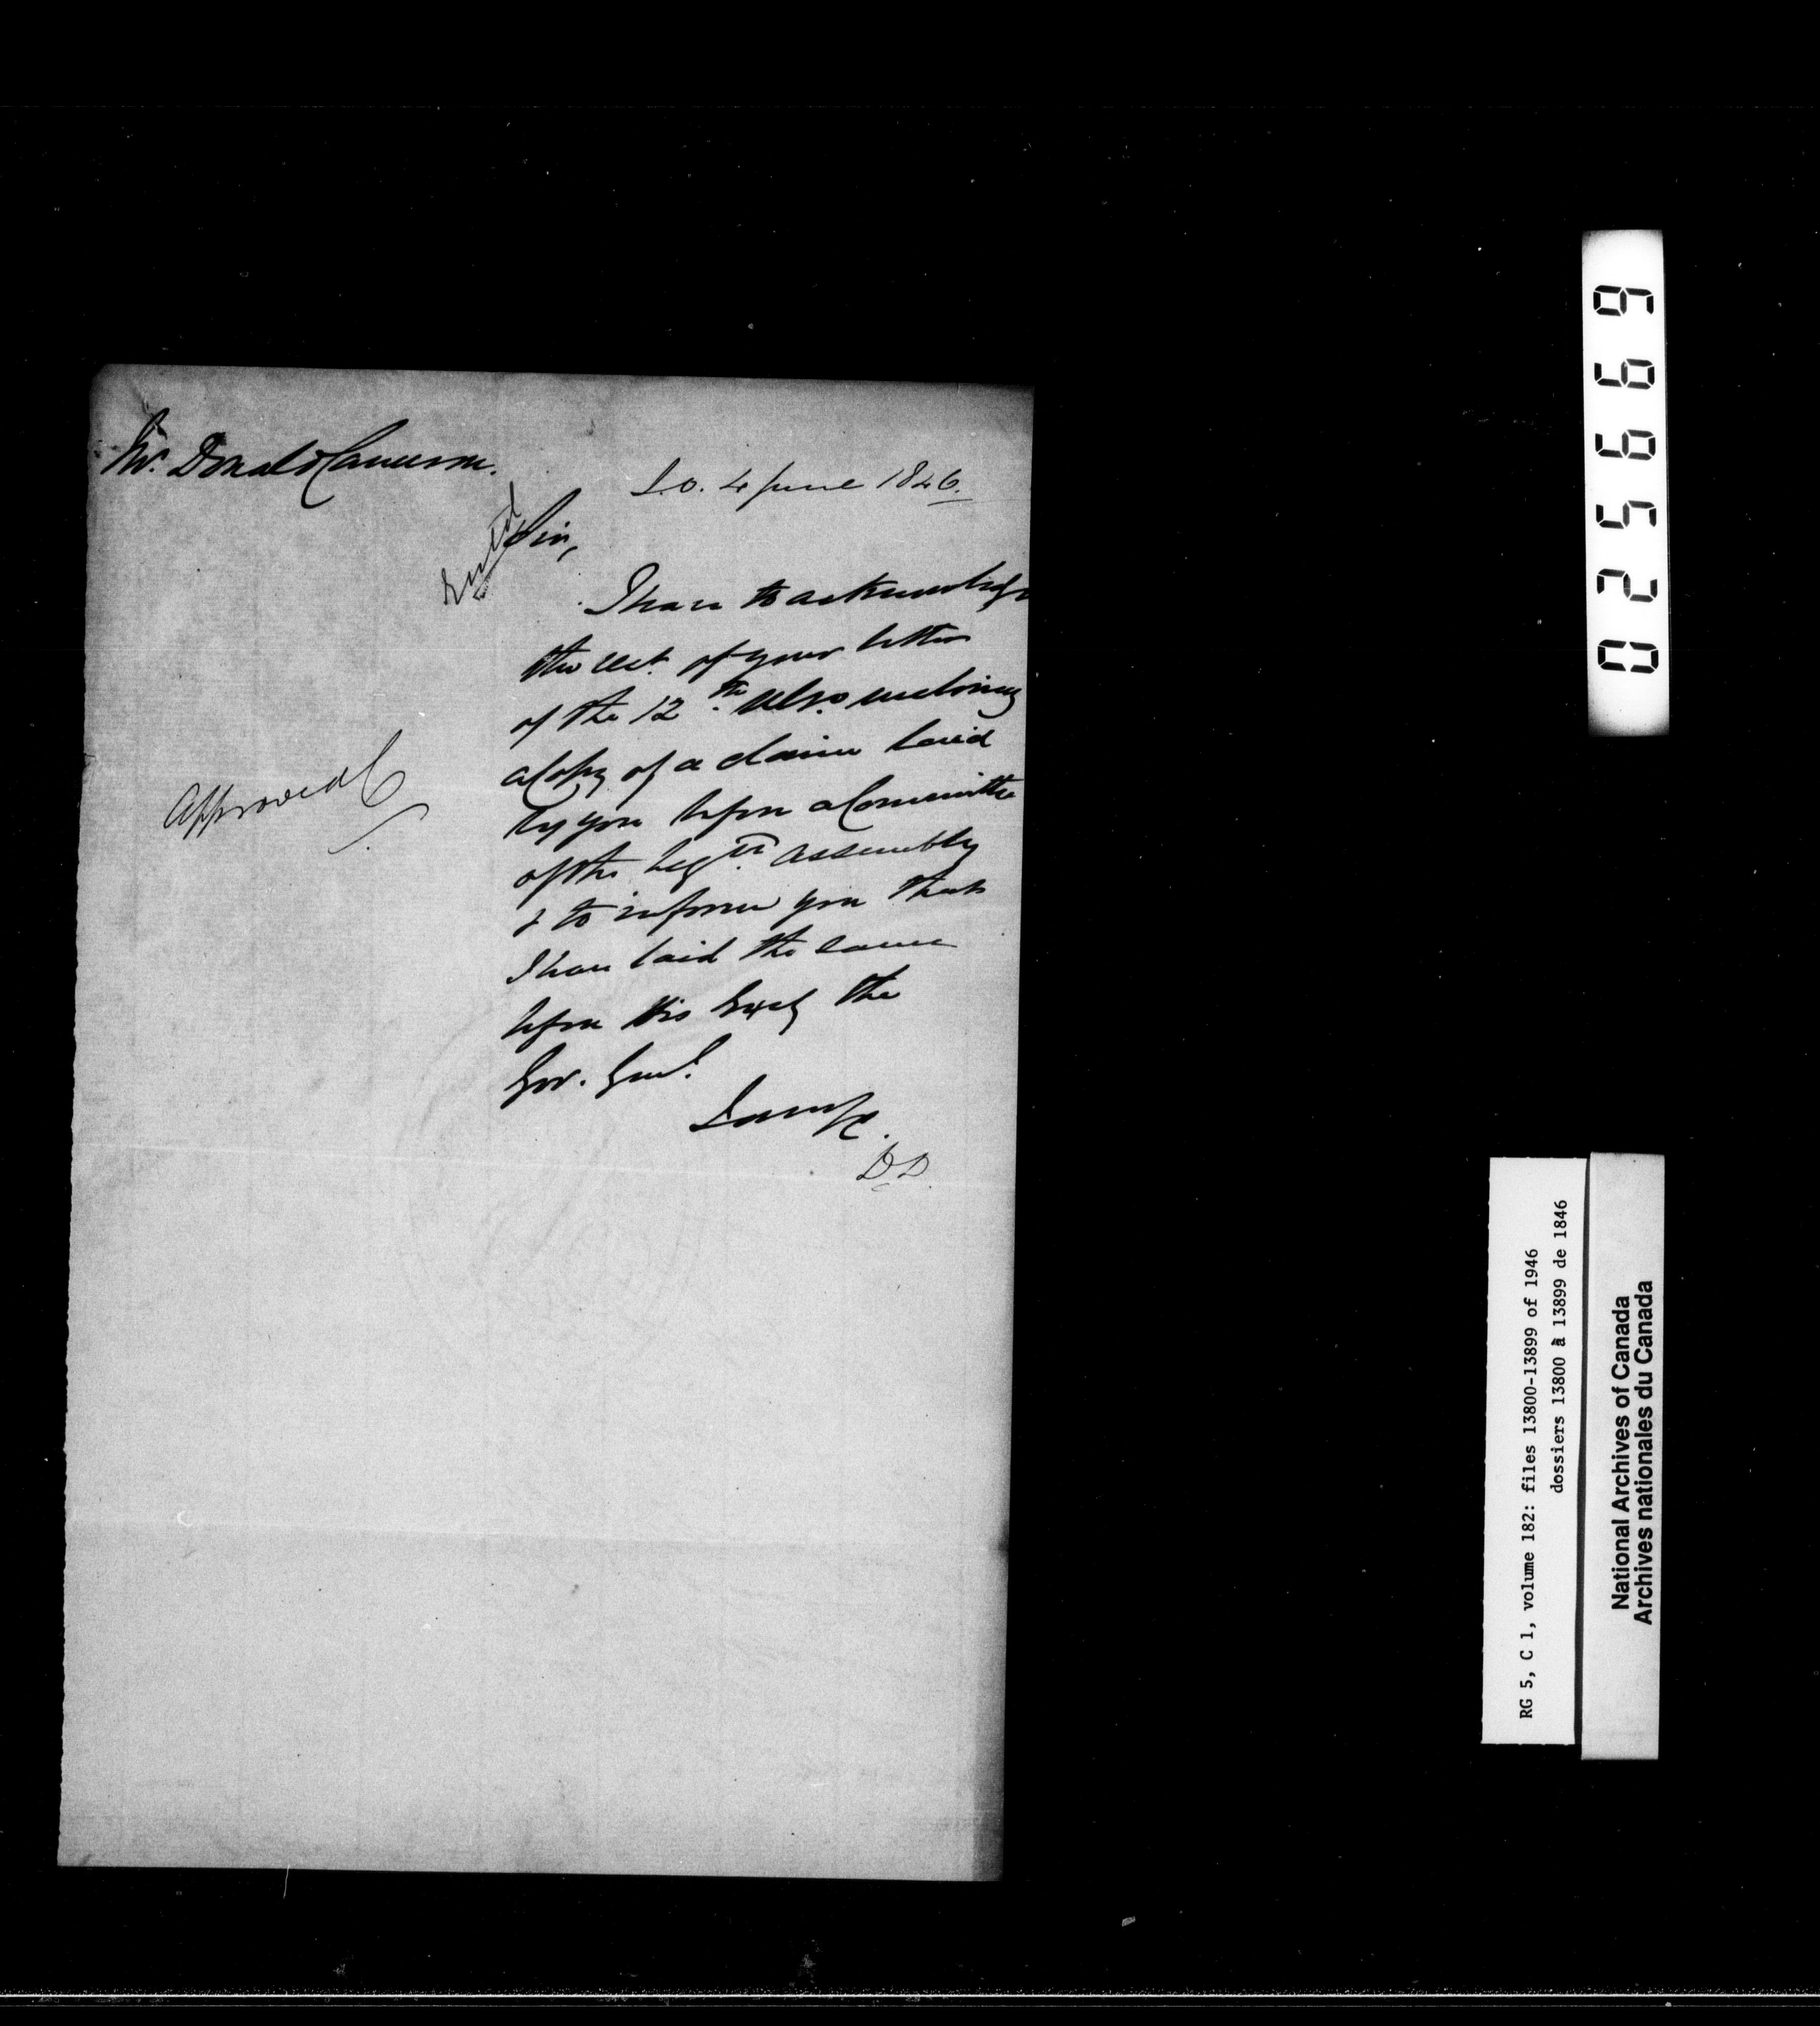 Mr. Donald Cameron.
S.O. 4 June 1846.
Entd
Sir,
I have to acknowledge
the rect. of your letter
of the 12th. Ulto. enclosing
a Copy of a claim laid
by you before a Committee
of the Legve. Assembly
& to inform you that
I have laid the same
before His Excy the
Gov. Genl.
I am &c.
D.D.
Approved
025669
RG 5, C 1, volume 182: files 13800-13899 of 1946
dossiers 13800 à 13899 de 1846
National Archives of Canada
Archives nationales du Canada